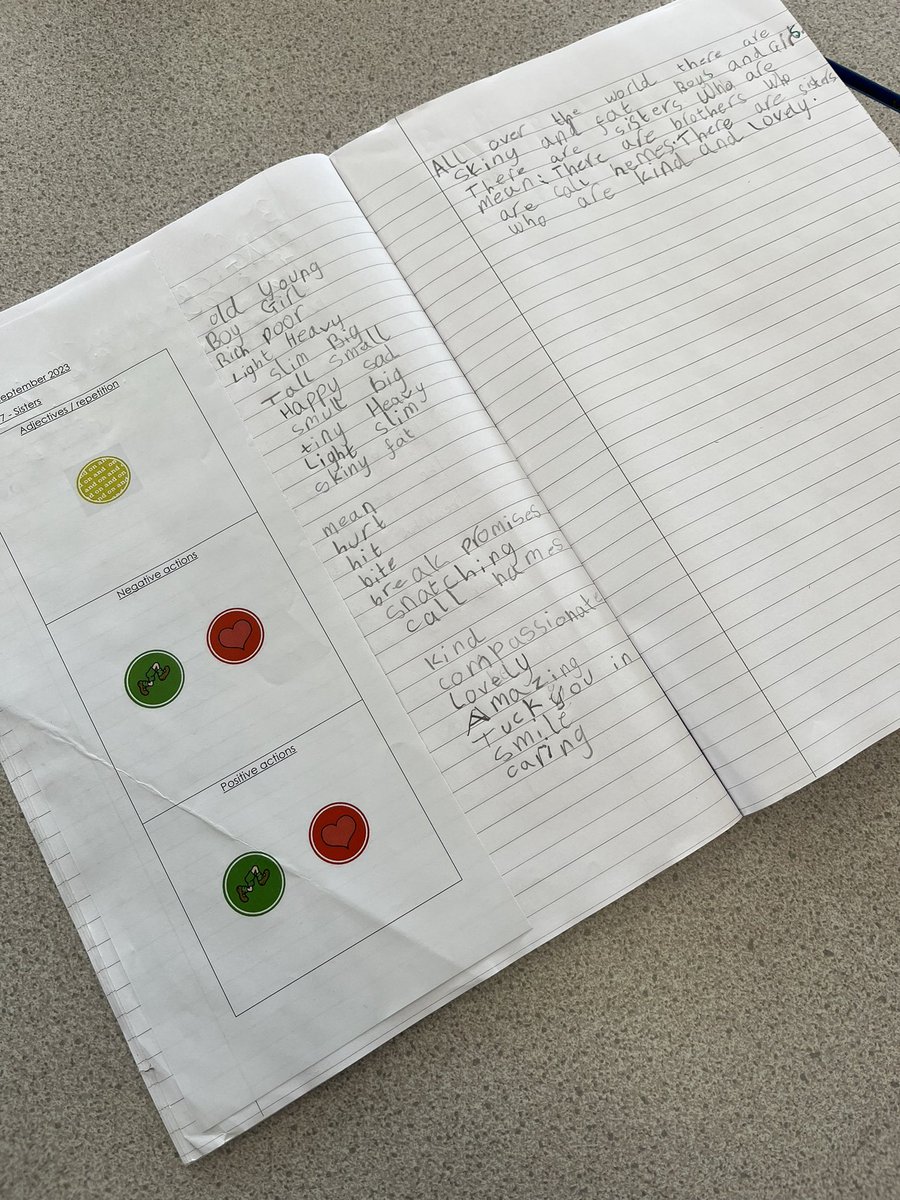 eptember 2023
7 - Sisters
Adjectives / repetition
Negative actions
Positive actions
old Young
Boy Girl
Rich poor
Light Heavy
Slim Big
Tall small
Happy sad
small big
tiny Heavy
Light slim
skiny fat
mean
hurt
hit
bite
break promises
snatching
call names
Kind
compassionate
Lovely
Amazing
Tuck you in
smile
caring
All over the world there are
skiny and fat Boys and Girls
There are sisters who are
mean. There are brothers who
are call hemes. There are sisters
who are kind and Lovely.